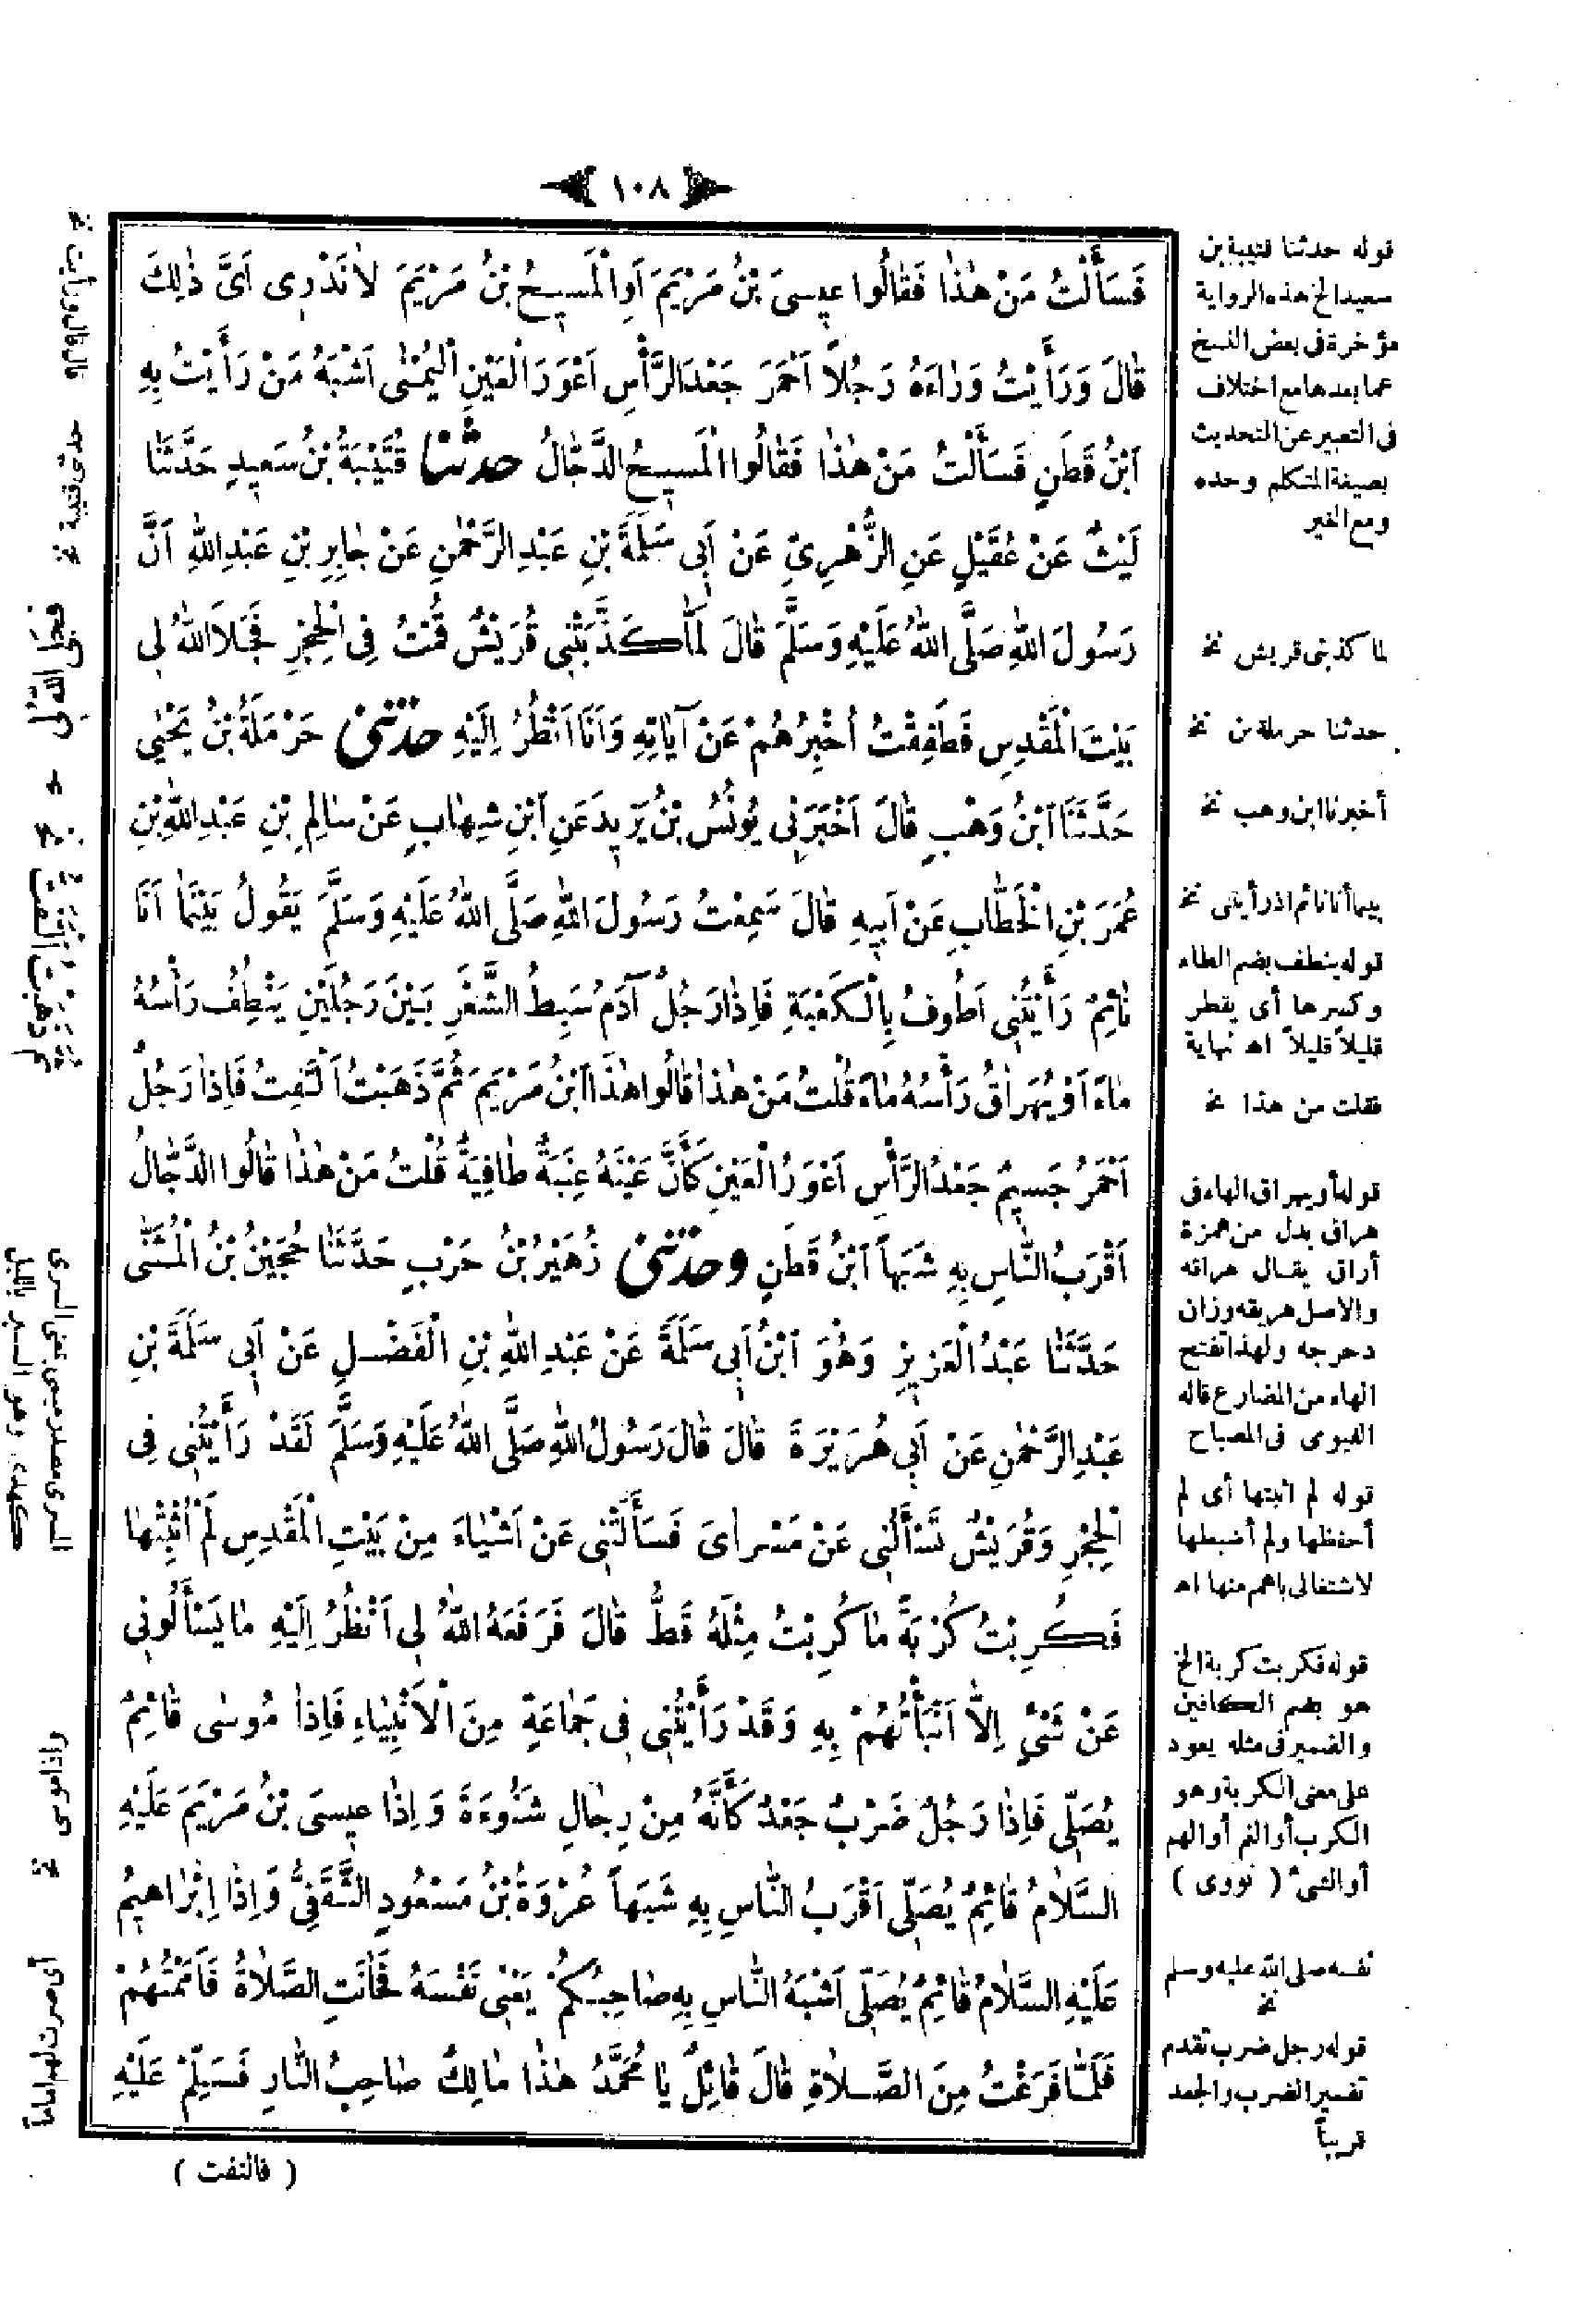 ١٠٨
فَسَأَلْتُ مَنْ هٰذَا فَقَالُوا عِيسَى بْنُ مَرْيَمَ اَوِ الْمَسِيحُ بْنُ مَرْيَمَ لَانَدْرِى اَىَّ ذٰلِكَ
قَالَ وَرَأَيْتُ وَرَاءَهُ رَجُلاً اَحْمَرَ جَعْدَ الرَّأْسِ اَعْوَرَ الْعَيْنِ الْيُمْنٰى اَشْبَهُ مَنْ رَأَيْتُ بِهِ
ابْنُ قَطَنٍ فَسَأَلْتُ مَنْ هٰذَا فَقَالُوا الْمَسِيحُ الدَّجَّالُ حدثنا قُتَيْبَةُ بْنُ سَعِيدٍ حَدَّثَنَا
لَيْثٌ عَنْ عُقَيْلٍ عَنِ الزُّهْرِيِّ عَنْ اَبِى سَلَمَةَ بْنِ عَبْدِ الرَّحْمٰنِ عَنْ جَابِرِ بْنِ عَبْدِ اللهِ اَنَّ
رَسُولَ اللهِ صَلَّى اللهُ عَلَيْهِ وَسَلَّمَ قَالَ لَمَّا كَذَّبَتْنِى قُرَيْشٌ قُمْتُ فِى الْحِجْرِ فَجَلَا اللهُ لِى
بَيْتَ الْمَقْدِسِ فَطَفِقْتُ اُخْبِرُهُمْ عَنْ آيَاتِهِ وَاَنَا اَنْظُرُ اِلَيْهِ حدثنى حَرْمَلَةُ بْنُ يَحْيٰى
حَدَّثَنَا ابْنُ وَهْبٍ قَالَ اَخْبَرَنِى يُونُسُ بْنُ يَزِيدَ عَنِ ابْنِ شِهَابٍ عَنْ سَالِمِ بْنِ عَبْدِ اللهِ بْنِ
عُمَرَ بْنِ الْخَطَّابِ عَنْ اَبِيهِ قَالَ سَمِعْتُ رَسُولَ اللهِ صَلَّى اللهُ عَلَيْهِ وَسَلَّمَ يَقُولُ بَيْنَمَا اَنَا
نَائِمٌ رَأَيْتُنِى اَطُوفُ بِالْكَعْبَةِ فَاِذَا رَجُلٌ آدَمُ سَبِطُ الشَّعْرِ بَيْنَ رَجُلَيْنِ يَنْطِفُ رَأْسُهُ
مَاءً اَوْ يُهَرَاقُ رَأْسُهُ مَاءً قُلْتُ مَنْ هٰذَا قَالُوا هٰذَا ابْنُ مَرْيَمَ ثُمَّ ذَهَبْتُ اَلْتَفِتُ فَاِذَا رَجُلٌ
اَحْمَرُ جَسِيمٌ جَعْدُ الرَّأْسِ اَعْوَرُ الْعَيْنِ كَأَنَّ عَيْنَهُ عِنَبَةٌ طَافِيَةٌ قُلْتُ مَنْ هٰذَا قَالُوا الدَّجَّالُ
اَقْرَبُ النَّاسِ بِهِ شَبَهًا ابْنُ قَطَنٍ وحدثنى زُهَيْرُ بْنُ حَرْبٍ حَدَّثَنَا حُجَيْنُ بْنُ الْمُثَنّٰى
حَدَّثَنَا عَبْدُ الْعَزِيزِ وَهُوَ ابْنُ اَبِى سَلَمَةَ عَنْ عَبْدِ اللهِ بْنِ الْفَضْلِ عَنْ اَبِى سَلَمَةَ بْنِ
عَبْدِ الرَّحْمٰنِ عَنْ اَبِى هُرَيْرَةَ قَالَ قَالَ رَسُولُ اللهِ صَلَّى اللهُ عَلَيْهِ وَسَلَّمَ لَقَدْ رَأَيْتُنِى فِى
الْحِجْرِ وَقُرَيْشٌ تَسْأَلُنِى عَنْ مَسْرَاىَ فَسَأَلَتْنِى عَنْ اَشْيَاءَ مِنْ بَيْتِ الْمَقْدِسِ لَمْ اُثْبِتْهَا
فَكُرِبْتُ كُرْبَةً مَا كُرِبْتُ مِثْلَهُ قَطُّ قَالَ فَرَفَعَهُ اللهُ لِى اَنْظُرُ اِلَيْهِ مَا يَسْأَلُونِى
عَنْ شَىْءٍ اِلَّا اَنْبَأْتُهُمْ بِهِ وَقَدْ رَأَيْتُنِى فِى جَمَاعَةٍ مِنَ الْاَنْبِيَاءِ فَاِذَا مُوسٰى قَائِمٌ
يُصَلِّى فَاِذَا رَجُلٌ ضَرْبٌ جَعْدٌ كَأَنَّهُ مِنْ رِجَالِ شَنُوءَةَ وَاِذَا عِيسَى بْنُ مَرْيَمَ عَلَيْهِ
السَّلَامُ قَائِمٌ يُصَلِّى اَقْرَبُ النَّاسِ بِهِ شَبَهًا عُرْوَةُ بْنُ مَسْعُودٍ الثَّقَفِىُّ وَاِذَا اِبْرَاهِيمُ
عَلَيْهِ السَّلَامُ قَائِمٌ يُصَلِّى اَشْبَهُ النَّاسِ بِهِ صَاحِبُكُمْ يَعْنِى نَفْسَهُ فَحَانَتِ الصَّلَاةُ فَاَمَمْتُهُمْ
فَلَمَّا فَرَغْتُ مِنَ الصَّلَاةِ قَالَ قَائِلٌ يَا مُحَمَّدُ هٰذَا مَالِكٌ صَاحِبُ النَّارِ فَسَلِّمْ عَلَيْهِ
( فالتفت )
قوله حدثنا قتيبة بن
سعيد الخ هذه الرواية
مؤخرة فى بعض النسخ
عما بعدها مع اختلاف
فى التعبير عن التحديث
بصيغة المتكلم وحده
ومع الغير
لما كذبنى قريش نخ
حدثنا حرملة بن نخ
أخبرنا ابن وهب نخ
بينما أنا نائم اذ رأيتنى نخ
قوله ينطف بضم الطاء
وكسرها أى يقطر
قليلاً قليلاً اه نهاية
فقلت من هذا نخ
قوله أو يهراق الهاء فى
هراق بدل من همزة
أراق يقال هراقه
والاصل هريقه وزان
دحرجه ولهذا تفتح
الهاء من المضارع قاله
الفيومى فى المصباح
قوله لم اثبتها أى لم
أحفظها ولم أضبطها
لاشتغالى باهم منها اه
قوله فكربت كربة الخ
هو بضم الكافين
والضمير فى مثله يعود
على معنى الكربة وهو
الكرب أو الغم أو الهم
أو الشئ ( نووى )
نفسه صلى الله عليه وسلم
نخ
قوله رجل ضرب تقدم
تفسير الضرب والجعد
قريباً
قال قال ورأيت نخ
حدثنى قتيبة نخ
فجلّى الله لى
ثم ذهبت التفت نخ
المسرى مصدر ميمى بمعنى السرى
كهدى وهو السير بالليل
واذا موسى نخ
أى صرت لهم اماماً